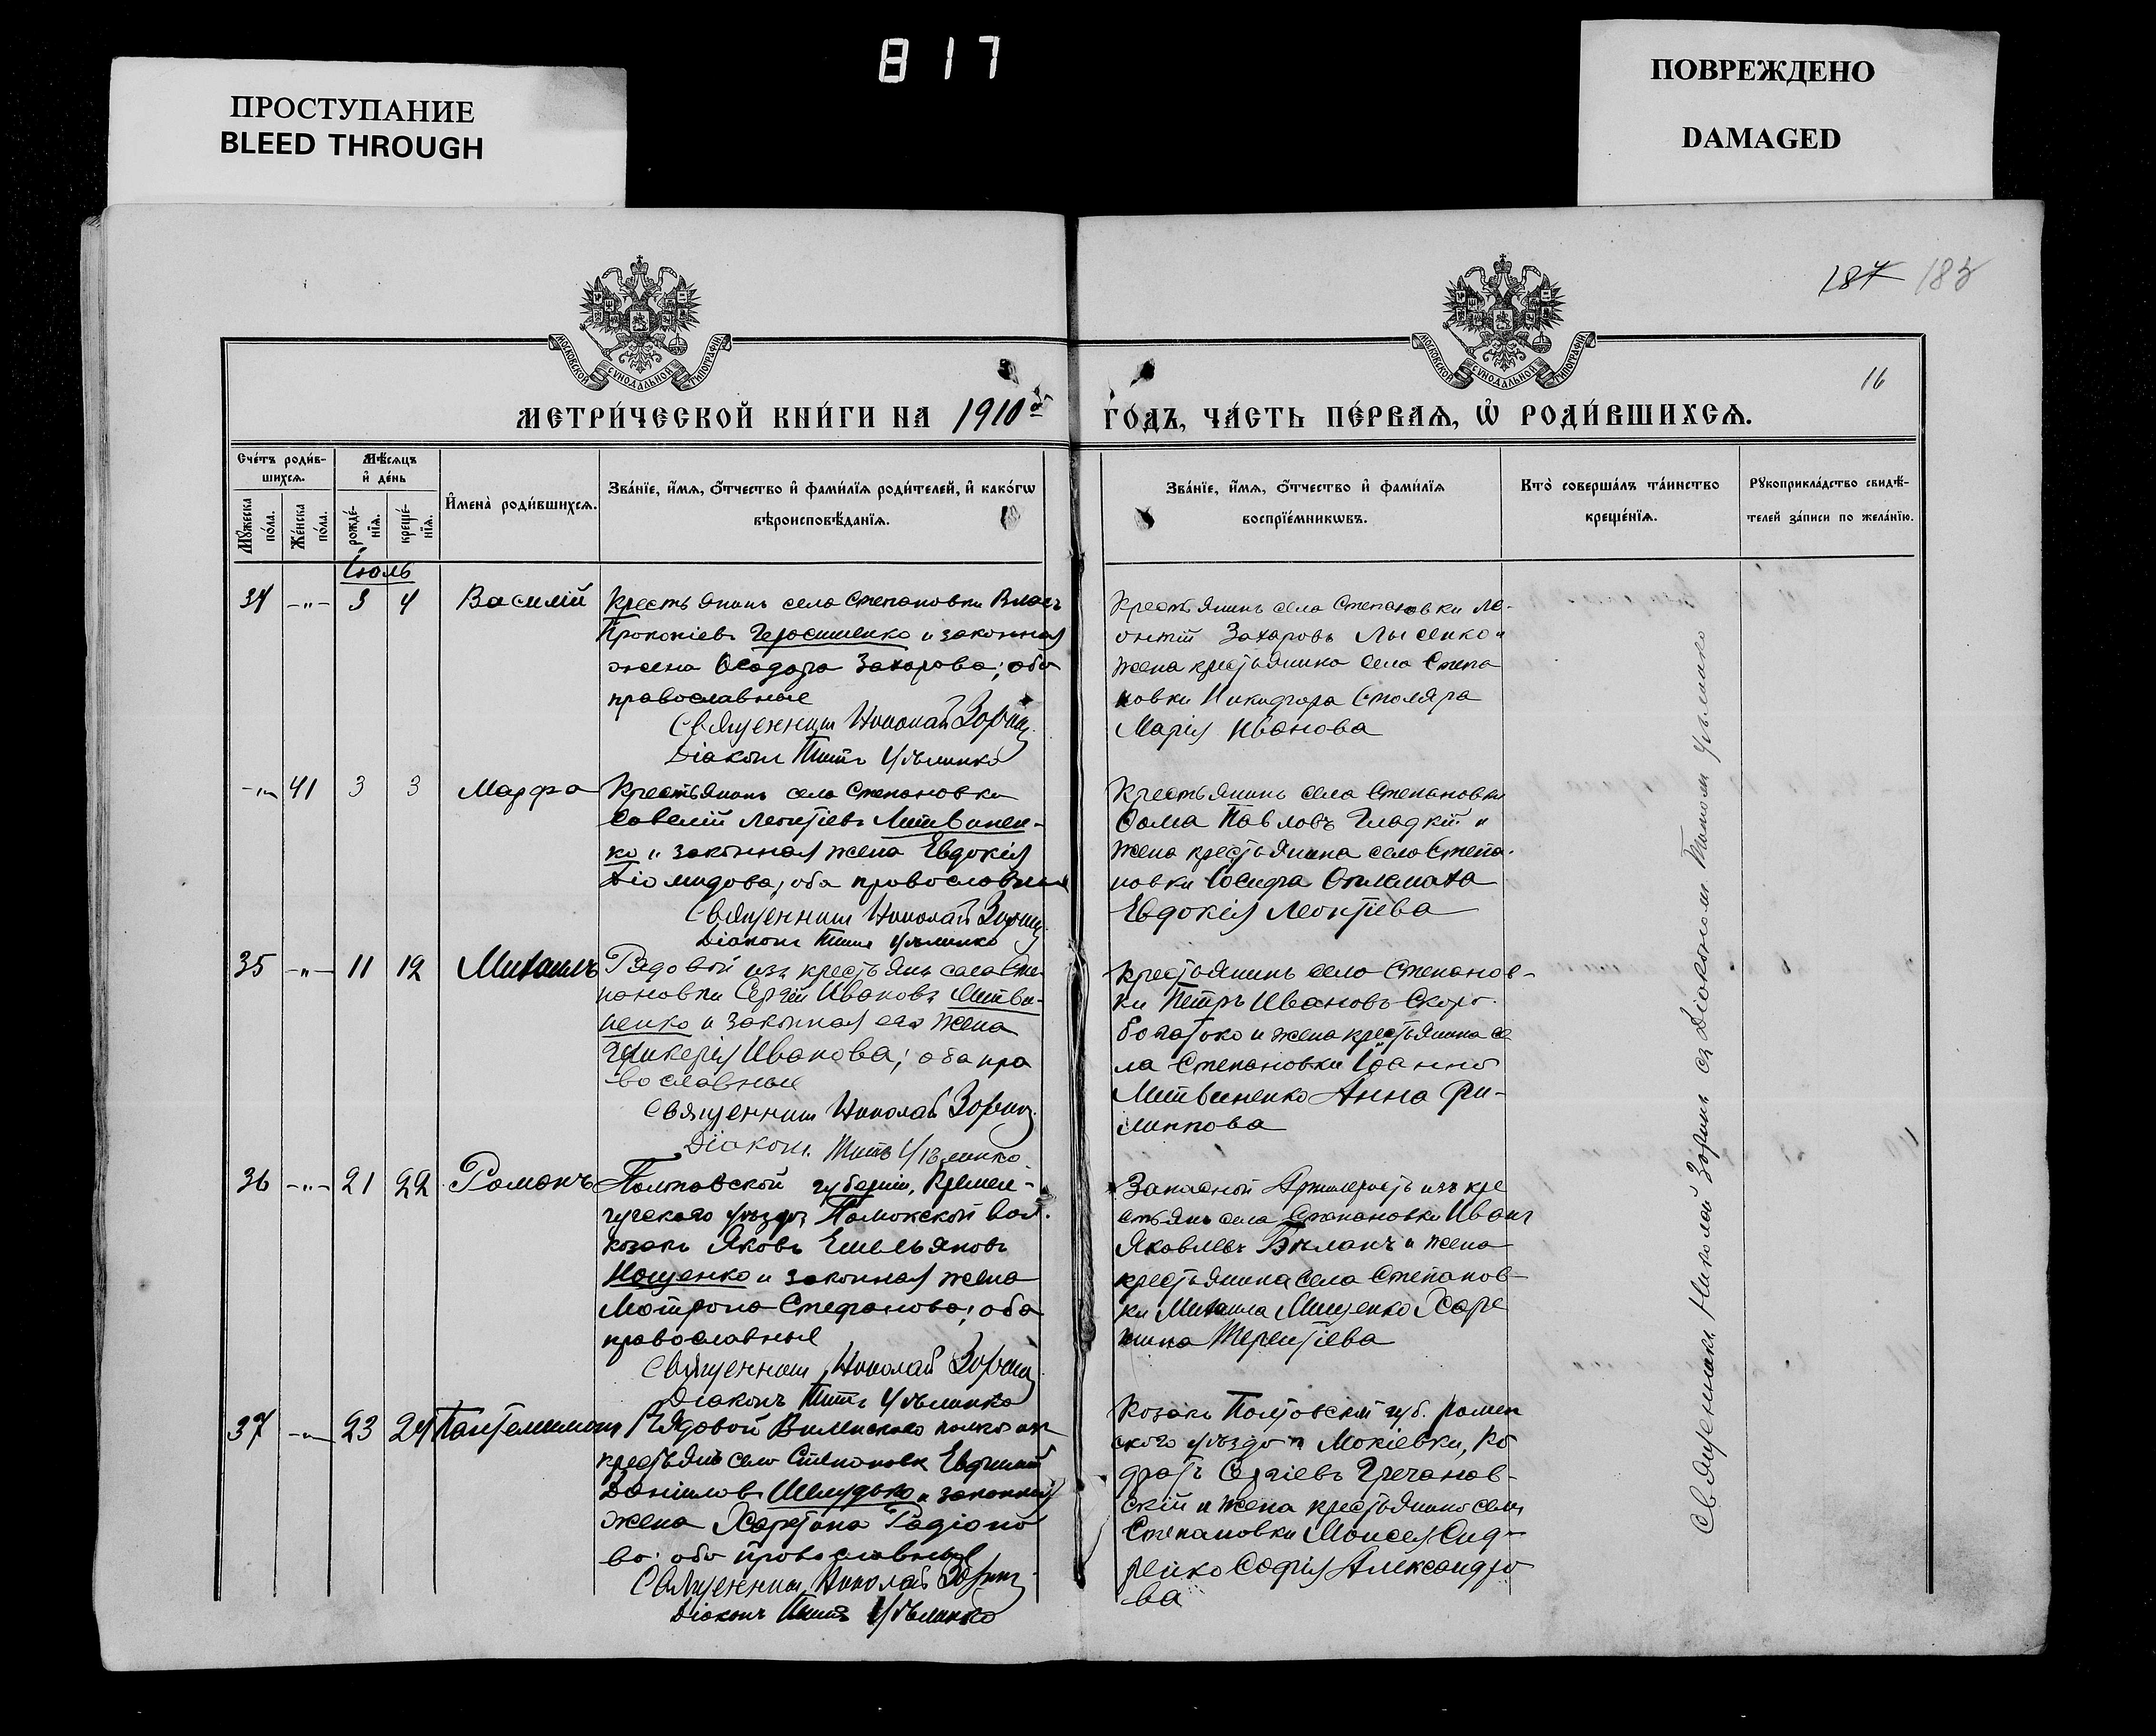 817
ПРОСТУПАНИЕ
BLEED THROUGH
ПОВРЕЖДЕНО
DAMAGED
187 183
16
МОСКОВСКОЙ СѴНОДАЛЬНОЙ ТИПОГРАФІИ
МОСКОВСКОЙ СѴНОДАЛЬНОЙ ТИПОГРАФІИ
МЕТРИ́ЧЕСКОЙ КНИ́ГИ НА 1910й ГО́ДЪ, ЧА́СТЬ ПЕ́РВАѦ, Ѡ҆ РОДИ́ВШИХСѦ.
Сче́тъ роди́в-
шихсѧ.
Мꙋ́жеска по́ла.
Же́нска по́ла.
Мѣ́сѧцъ
и҆ де́нь
рожде́-
нїѧ.
креще́-
нїѧ.
И҆мена̀ роди́вшихсѧ.
Зва́нїе, и҆́мѧ, ѻ҆́тчество и҆ фами́лїѧ роди́телей, и҆ како́гѡ
вѣроисповѣ́данїѧ.
Зва́нїе, и҆́мѧ, ѻ҆́тчество и҆ фами́лїѧ
воспрїе́мникѡвъ.
Кто̀ соверша́лъ та́инство
креще́нїѧ.
Рꙋкоприкла́дство свидѣ́-
телей за́писи по жела́нїю.
Іюль
34 -"- 3 4 Василій
Крестьянинъ села Степановки Власъ
Прокопіевъ Герасименко и законная
жена Ѳеодора Захарова; оба
православные
Священникъ Николай Зоринъ
Діаконъ Титъ
Крестьянинъ села Степановки Ле-
онтій Захаровъ Лысенко и
жена крестьянина села Степа
новки Никифора Столяра
Марія Иванова
-"- 41 3 3 Марфа
Крестьянинъ села Степановки
Савелій Леонтіевъ Литвинен-
ко и законная жена Евдокія
Діомидова; оба православные
Священникъ Николай Зоринъ
Діаконъ Титъ
Крестьянинъ села Степановки
Ѳома Павловъ Гладкій и
жена крестьянина села Степа-
новки Іосифа
Евдокія Леонтіева
35 -"- 11 12 Михаилъ
Рядовой изъ крестьянъ села Сте-
пановки Сергій Ивановъ Литви-
ненко и законная его жена
Гликерія Иванова; оба пра
вославные
Священникъ Николай Зоринъ
Діаконъ Титъ
Крестьянинъ села Степанов-
ки Петръ Ивановъ Скоро-
богатько и жена крестьянина се
ла Степановки Іоанна
Литвиненко Анна Фи-
липпова
36 -"- 21 22 Романъ
Полтавской губерніи, Кремен-
чугскаго уѣзда вол.
козакъ Яковъ Емельяновъ
Нощенко и законная жена
Мотрона Стефанова; оба
православные
Священникъ Николай Зоринъ
Діаконъ Титъ
Запасной изъ кре
стьянъ села Степановки Иванъ
Яковлевъ Бѣланъ и жена
крестьянина села Степанов-
ки Михаила Мищенко Харе
тина Терентіева
37 -"- 23 24 Пантелеимонъ
Рядовой Виленскаго полка изъ
крестьянъ села Степановк Евфимій
Даніиловъ Шелудько и законная
жена Харитина Радіоно
ва; оба православные
Священникъ Николай Зоринъ
Діаконъ Титъ
Козакъ Полтовской губ. Ромен
скаго уѣзда Мокіевки, Ко
дратъ Сергіевъ Гречанов-
скій и жена крестьянина села
Степановки Моисея Сид-
ренко Софія Александро
ва
Священникъ Николай Зоринъ съ Діакономъ Титомъ